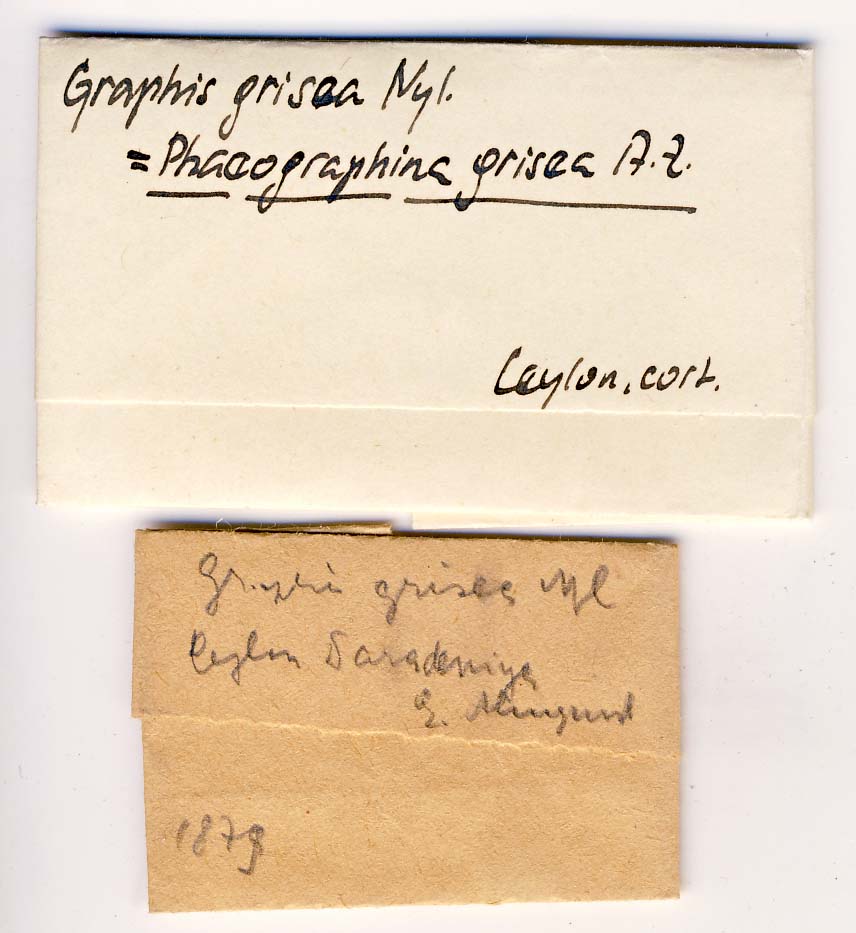 Graphis grisea Nyl.
= Phaeographina grisea A. Z.
Ceylon, cort.
Graphis grisea Nyl
Ceylon Paradeniya
E. Almquist
1879